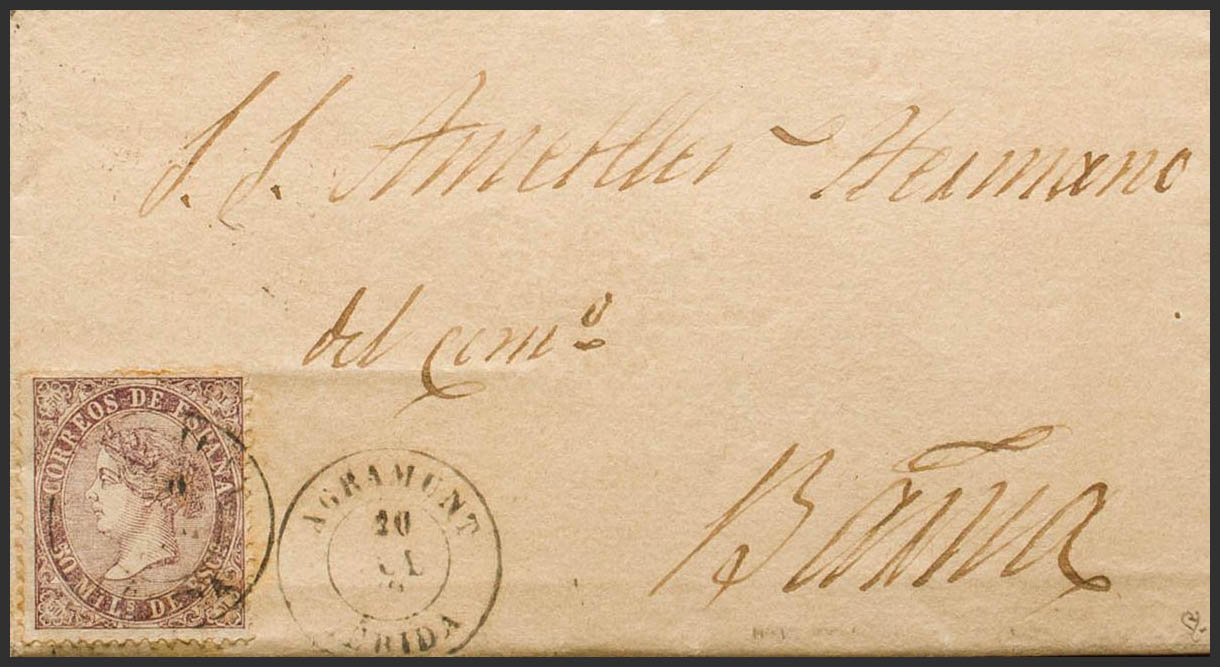 S. S. Ametller Hermano
del comº
Bāna
CORREOS DE ESPAÑA
50 MILS DE ESCO
AGRAMUNT
20
LERIDA